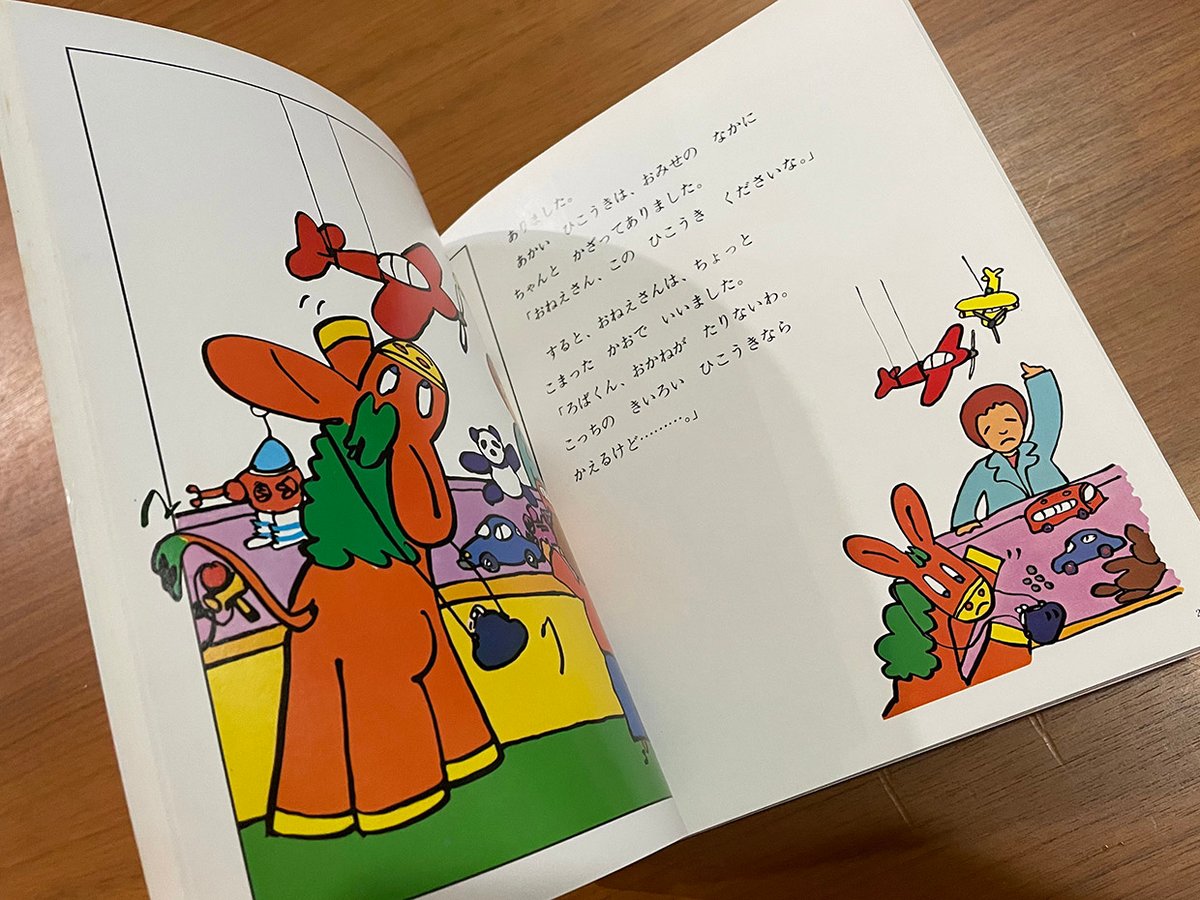 ありました。
あかい ひこうきは、おみせの なかに
ちゃんと かざってありました。
「おねえさん、この ひこうき くださいな。」
すると、おねえさんは、ちょっと
こまった かおで いいました。
「ろばくん、おかねが たりないわ。
こっちの きいろい ひこうきなら
かえるけど………。」